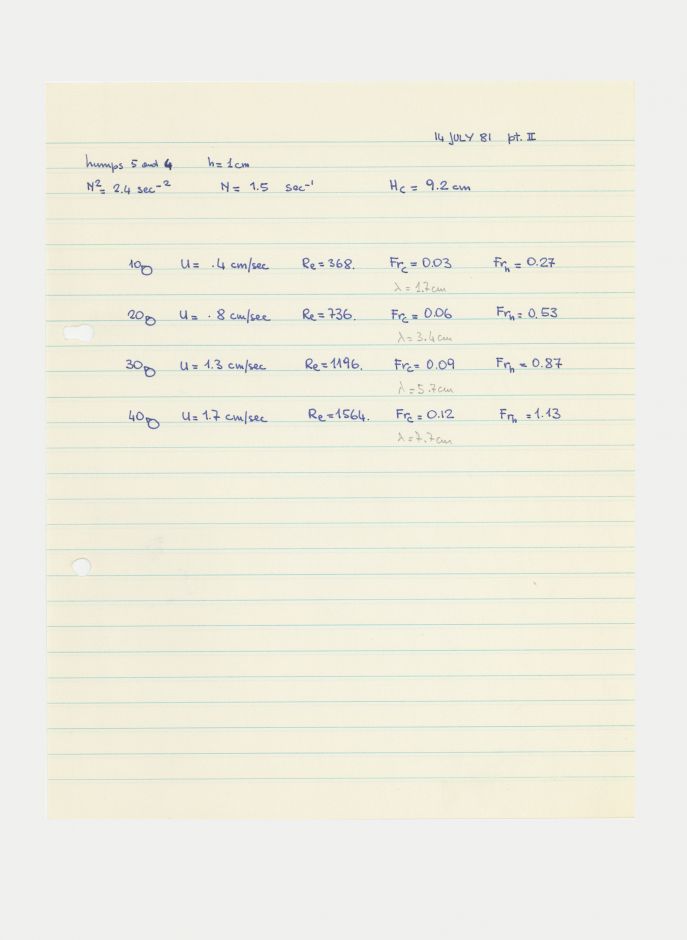 14 JULY 81 pt. II
humps 5 and 4 h = 1 cm
N² = 2.4 sec⁻² N = 1.5 sec⁻¹ Hc = 9.2 cm
10 U = .4 cm/sec Re = 368. Frc = 0.03 Frh = 0.27
λ = 1.7cm
20 U = .8 cm/sec Re = 736. Frc = 0.06 Frh = 0.53
λ = 3.4cm
30 U = 1.3 cm/sec Re = 1196. Frc = 0.09 Frh = 0.87
λ = 5.7cm
40 U = 1.7 cm/sec Re = 1564. Frc = 0.12 Frh = 1.13
λ = 7.7cm